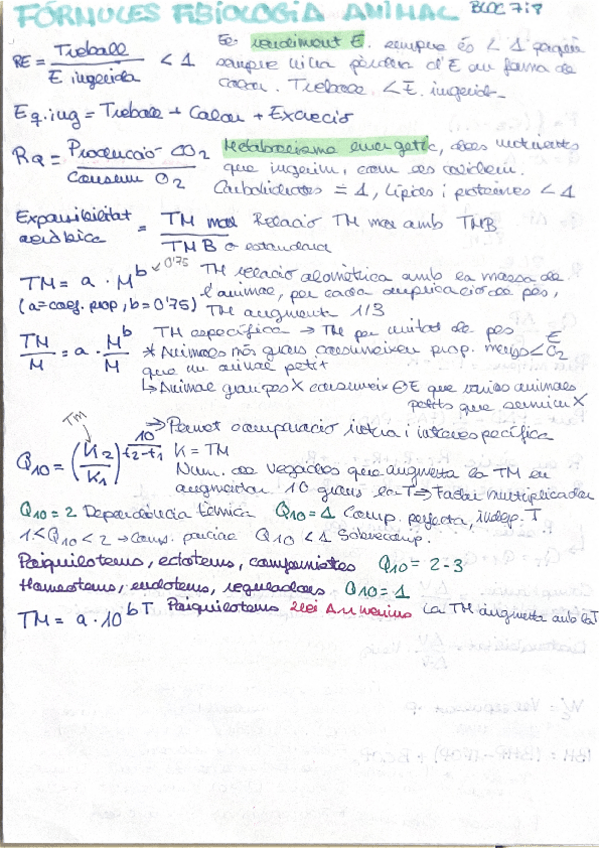 FÓRMULES FISIOLOGIA ANIMAL BLOC 7 i 8
RE = Treball / E ingerida < 1 El rendiment E. sempre és < 1 perquè
sempre hi ha pèrdua d'E en forma de
calor. Treball < E. ingerida
E q. ing = Treball + Calor + Excreció
RQ = Producció CO2 / Consum O2 Metabolisme energètic, dels nutrients
que ingerim, com es oxiden.
Carbohidrats = 1, Lípids i proteïnes < 1
Expansibilitat aeròbica = TM max / TMB o estandard Relació TM max amb TMB
TM = a · M^b 0'75 TM relació alomètrica amb la massa de
l'animal, per cada duplicació de pes,
(a = coef. prop, b = 0'75) TM augmenta 1/3
TM/M = a · M^b/M TM específica → TM per unitat de pes
* Animals més grans consumeixen prop. menys E O2
que un animal petit
↳ Animal gran pes X consumeix ⊖ E que varios animals
petits que sumin X
TM
Q10 = (K2/K1)^10/t2-t1 → Permet comparació intra i interespecífica
K = TM
Num. de vegades que augmenta la TM en
augmentar 10 graus la T ⇒ Factor multiplicador
Q10 = 2 Dependència tèrmica Q10 = 1 Comp. perfecta, indep. T
1 < Q10 < 2 → Comp. parcial Q10 < 1 Sobrecomp.
Poiquiloterms, ectoterms, conformistes Q10 = 2-3
Homeoterms, endoterms, reguladors Q10 = 1
TM = a · 10^bT Poiquiloterms Llei Arrhenius La TM augmenta amb la T